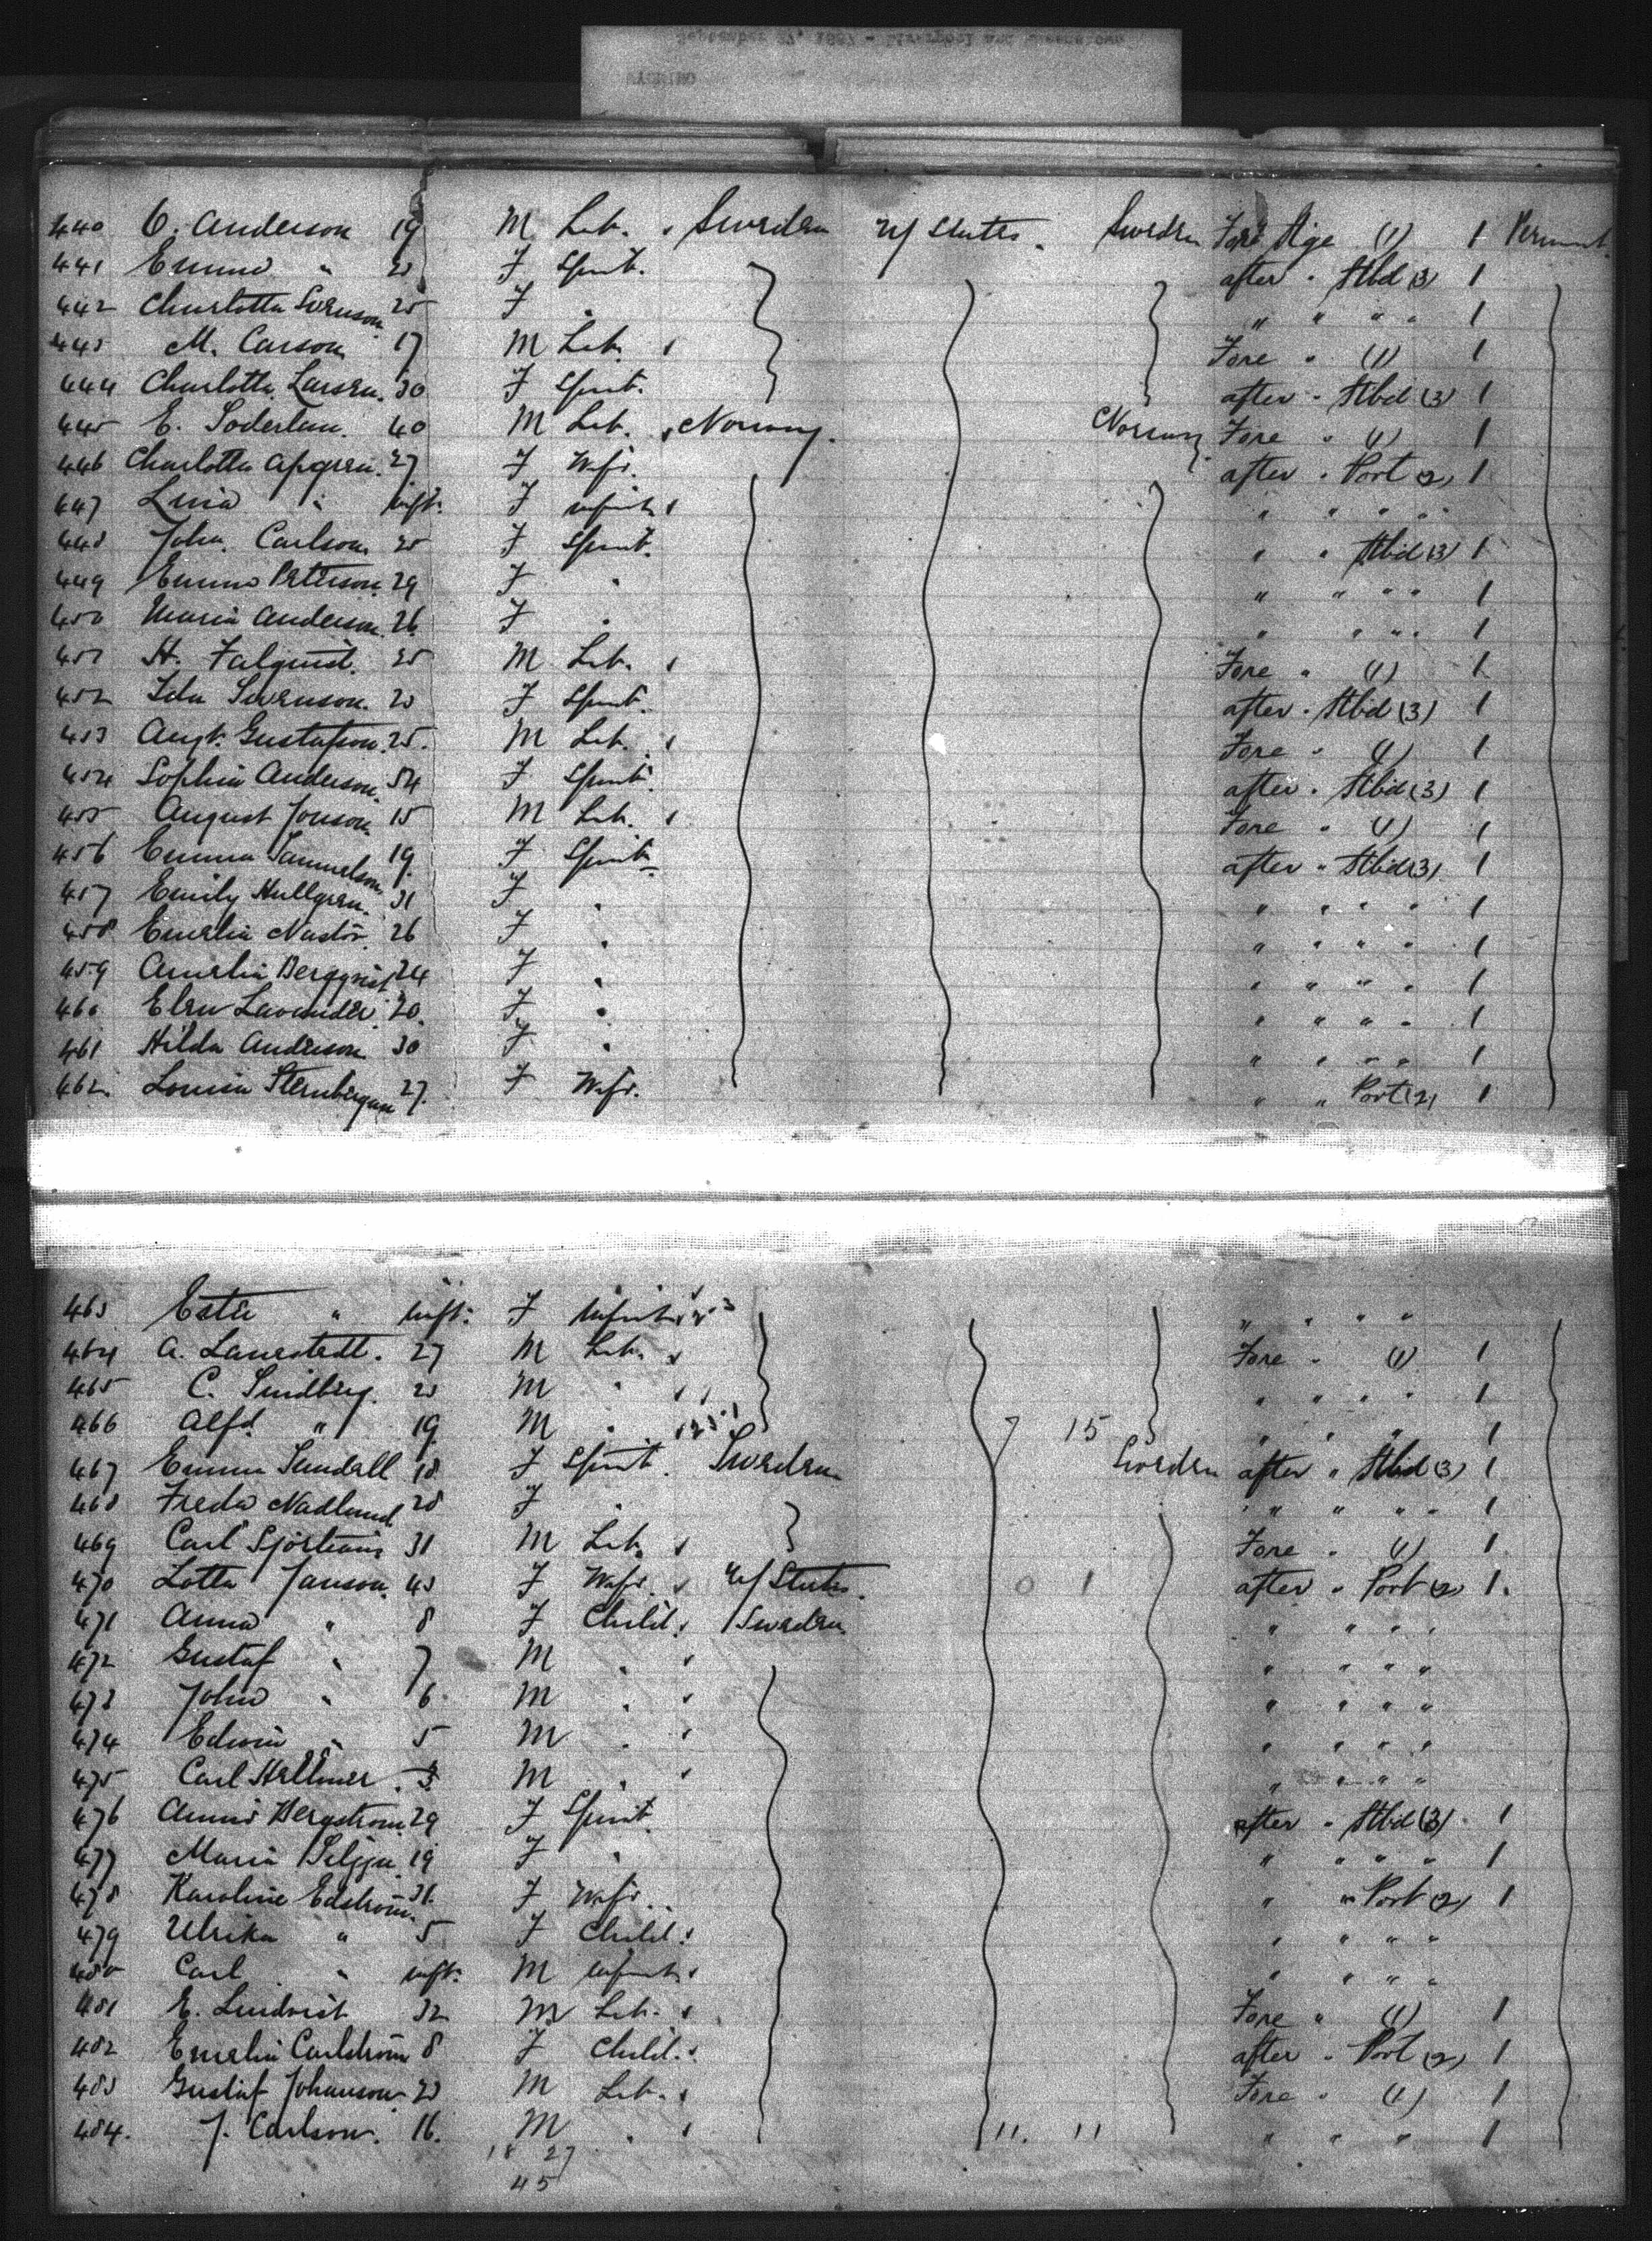 440 C. Anderson 19 M Lab. Sweden U/ States. Sweden Fore Stge (1) 1 Permant
441 Emma " 20 F Spinst. after " Stbd (3) 1
442 Charlotta Svenson 25 F " " " " " 1
443 M. Carson 17 M Lab. Fore " (1) 1
444 Charlotta Larsen. 30 F Spinst. after " Stbd (3) 1
445 E. Soderlun. 40 M Lab. Norway. Norway Fore " (1) 1
446 Charlotta Apgren. 27 F Wife. after " Port (2) 1
447 " inft. F infant " " " "
448 Joha. Carlson 25 F Spinst. " " Stbd (3) 1
449 Emma Peterson. 29 F " " " " " 1
450 Maria Anderson. 26. F " " " " " 1
451 H. Falquist. 25 M Lab. Fore " (1) 1
452 Ida Swenson. 20 F Spinst. after " Stbd (3) 1
453 Augt. Gustafson. 25. M Lab. Fore " (1) 1
454 Sophia Anderson. 54 F Spinst. after " Stbd (3) 1
455 August Jonson. 15 M Lab. Fore " (1) 1
456 Emma Samuelson 19. F Spinst. after " Stbd (3) 1
457 Emily Hullgren. 31 F " " " " " 1
458 Emelia 26 F " " " " " 1
459 Amelia Bergqvist 24 F " " " " " 1
460 Elen Lavander. 20. F " " " " " 1
461 Hilda Anderson 30 F " " " " " 1
462. Louisa Sternbergan 27. F Wife. " " Port (2) 1
463 Ester " inft. F Infant " " " "
464 A. Lanestedt. 27 M Lab. Fore " (1) 1
465 C. Sundberg. 20 M " " " " " 1
466 Alfd. " 19 M " 7 15 " " " 1
467 Emma Sundell 18 F Spinst. Sweden Sweden after " Stbd (3) 1
468 Freda Nadlund 28 F " " " " " 1
469 Carl 31 M Lab. Fore " (1) 1
470 Lotta Janson 43 F Wife. U/ States. 0 1 after " Port (2) 1.
471 Anna " 8 F Child. Sweden " " " "
472 Gustaf " 7 M " " " " "
473 John " 6 M " " " " "
474 Edwin " 5 M " " " " "
475 Carl Hellmer. 3 M " " " " "
476 Anna Bergstrom. 29 F Spinst. after " Stbd (3). 1
477 Maria 19 F " " " " " 1
478 Karoline Edstrom. 31. F Wife. " " Port (2) 1
479 Ulrika " 5 F Child. " " " "
480 Carl " inft. M infant " " " "
481 E. Lindvist 32 M Lab. Fore " (1) 1
482 Emelia Carlstrom 8 F Child. after " Port (2) 1
483 Gustaf Johanson 23 M Lab. Fore " (1) 1
484. J. Carlson. 16. M " 11. 11 " " " 1
18 27
45